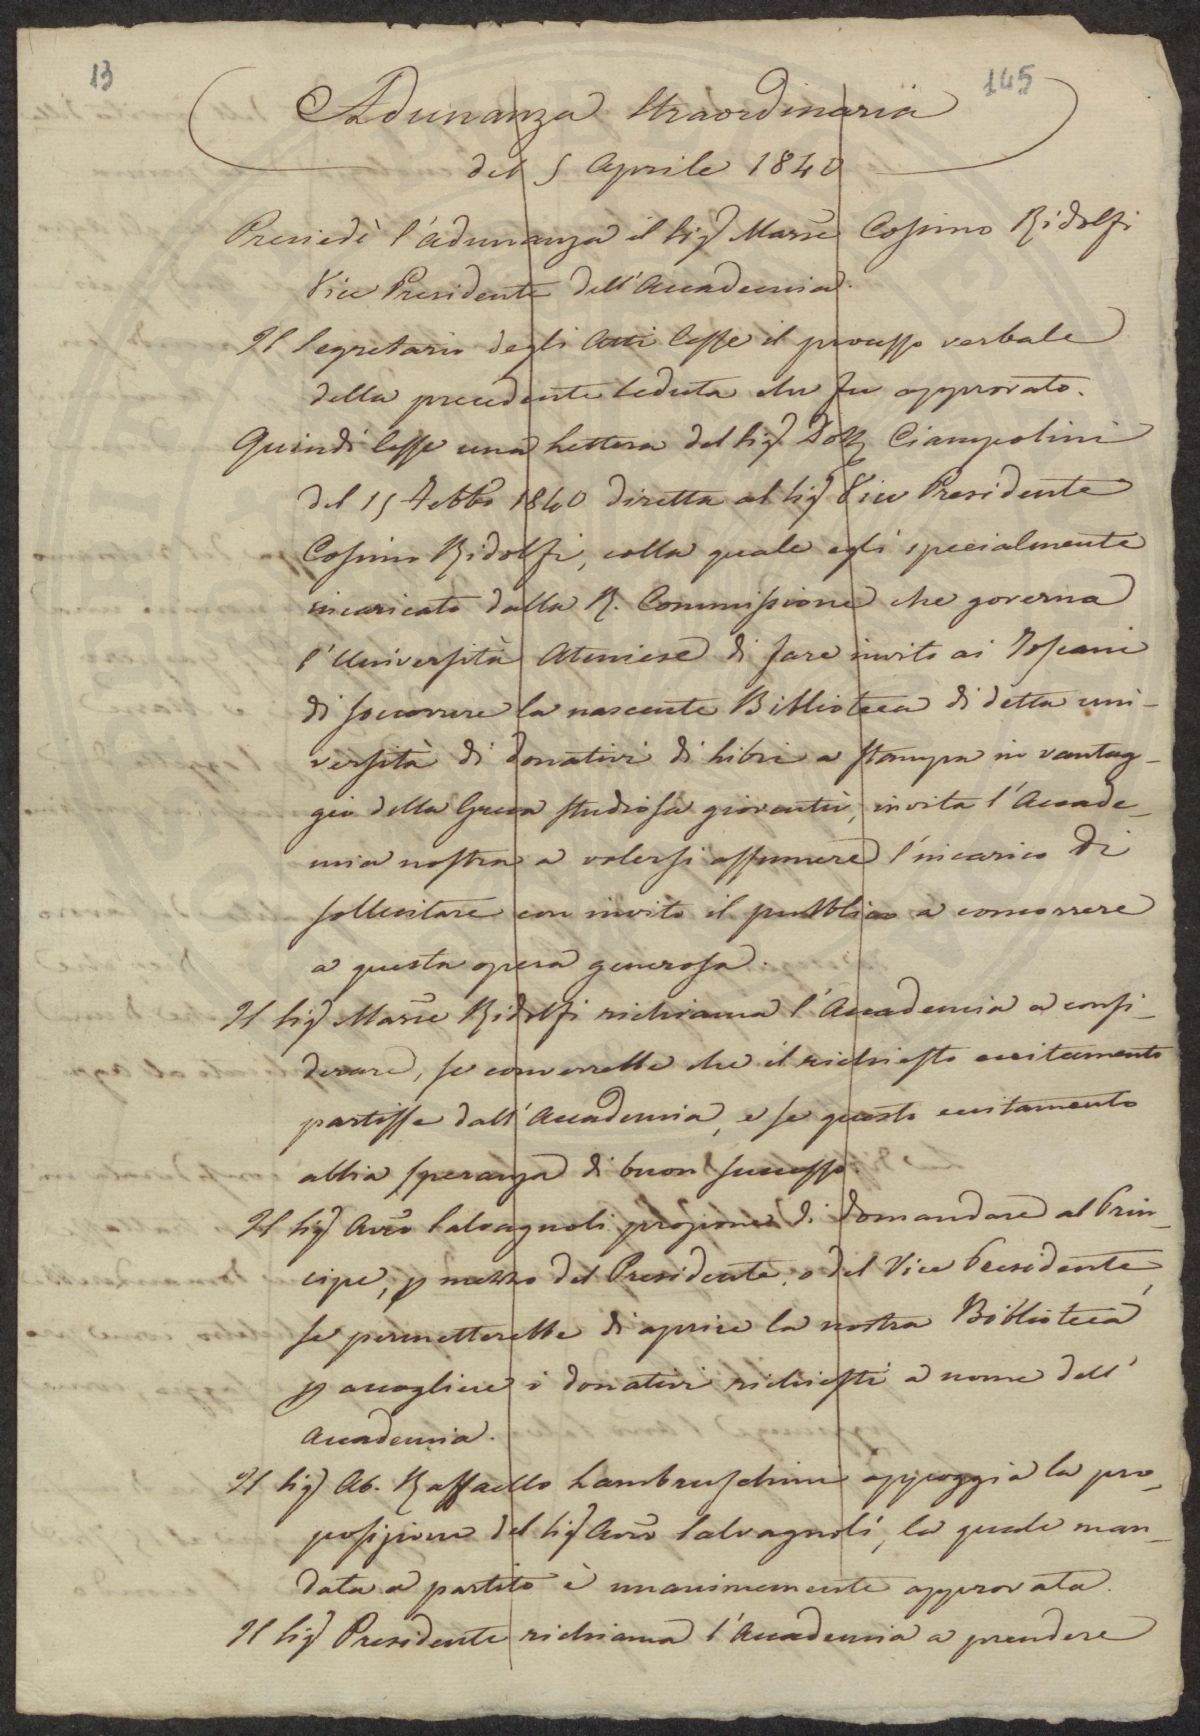 13
145
Adunanza Straordinaria
del 5 Aprile 1840
Presiedè l'adunanza il Sig.r March.e Cosimo Ridolfi
Vice Presidente dell'Accademia.
Il Segretario degli Atti lesse il processo verbale
della precedente Seduta che fu approvato.
Quindi lesse una Lettera del Sig.r Dott. Ciampolini
del 15 Febb.o 1840 diretta al Sig.r Vice Presidente
Cosimo Ridolfi, colla quale egli specialmente
incaricato dalla R. Commissione che governa
l'Università Ateniese di fare invito ai Toscani
di soccorrere la nascente Biblioteca di detta uni-
versità di donativi di Libri a stampa in vantag-
gio della Greca studiosa gioventù, invita l'Accade-
mia nostra a volersi assumere l'incarico di
sollecitare con invito il pubblico a concorrere
a questa opera generosa.
Il Sig.r March.e Ridolfi richiama l'Accademia a consi-
derare, se converrebbe che il richiesto eccitamento
partisse dall'Accademia, e se questo eccitamento
abbia speranza di buon successo.
Il Sig.r Avv.o Salvagnoli propone di domandare al Prin-
cipe, p mezzo del Presidente, o del Vice Presidente,
se permetterebbe di aprire la nostra Biblioteca
p accogliere i donativi richiesti a nome dell'
Accademia.
Il Sig.r Ab. Raffaello Lambruschini appoggia la pro-
posizione del Sig.r Avv.o Salvagnoli, la quale man-
data a partito è unanimemente approvata.
Il Sig.r Presidente richiama l'Accademia a prendere